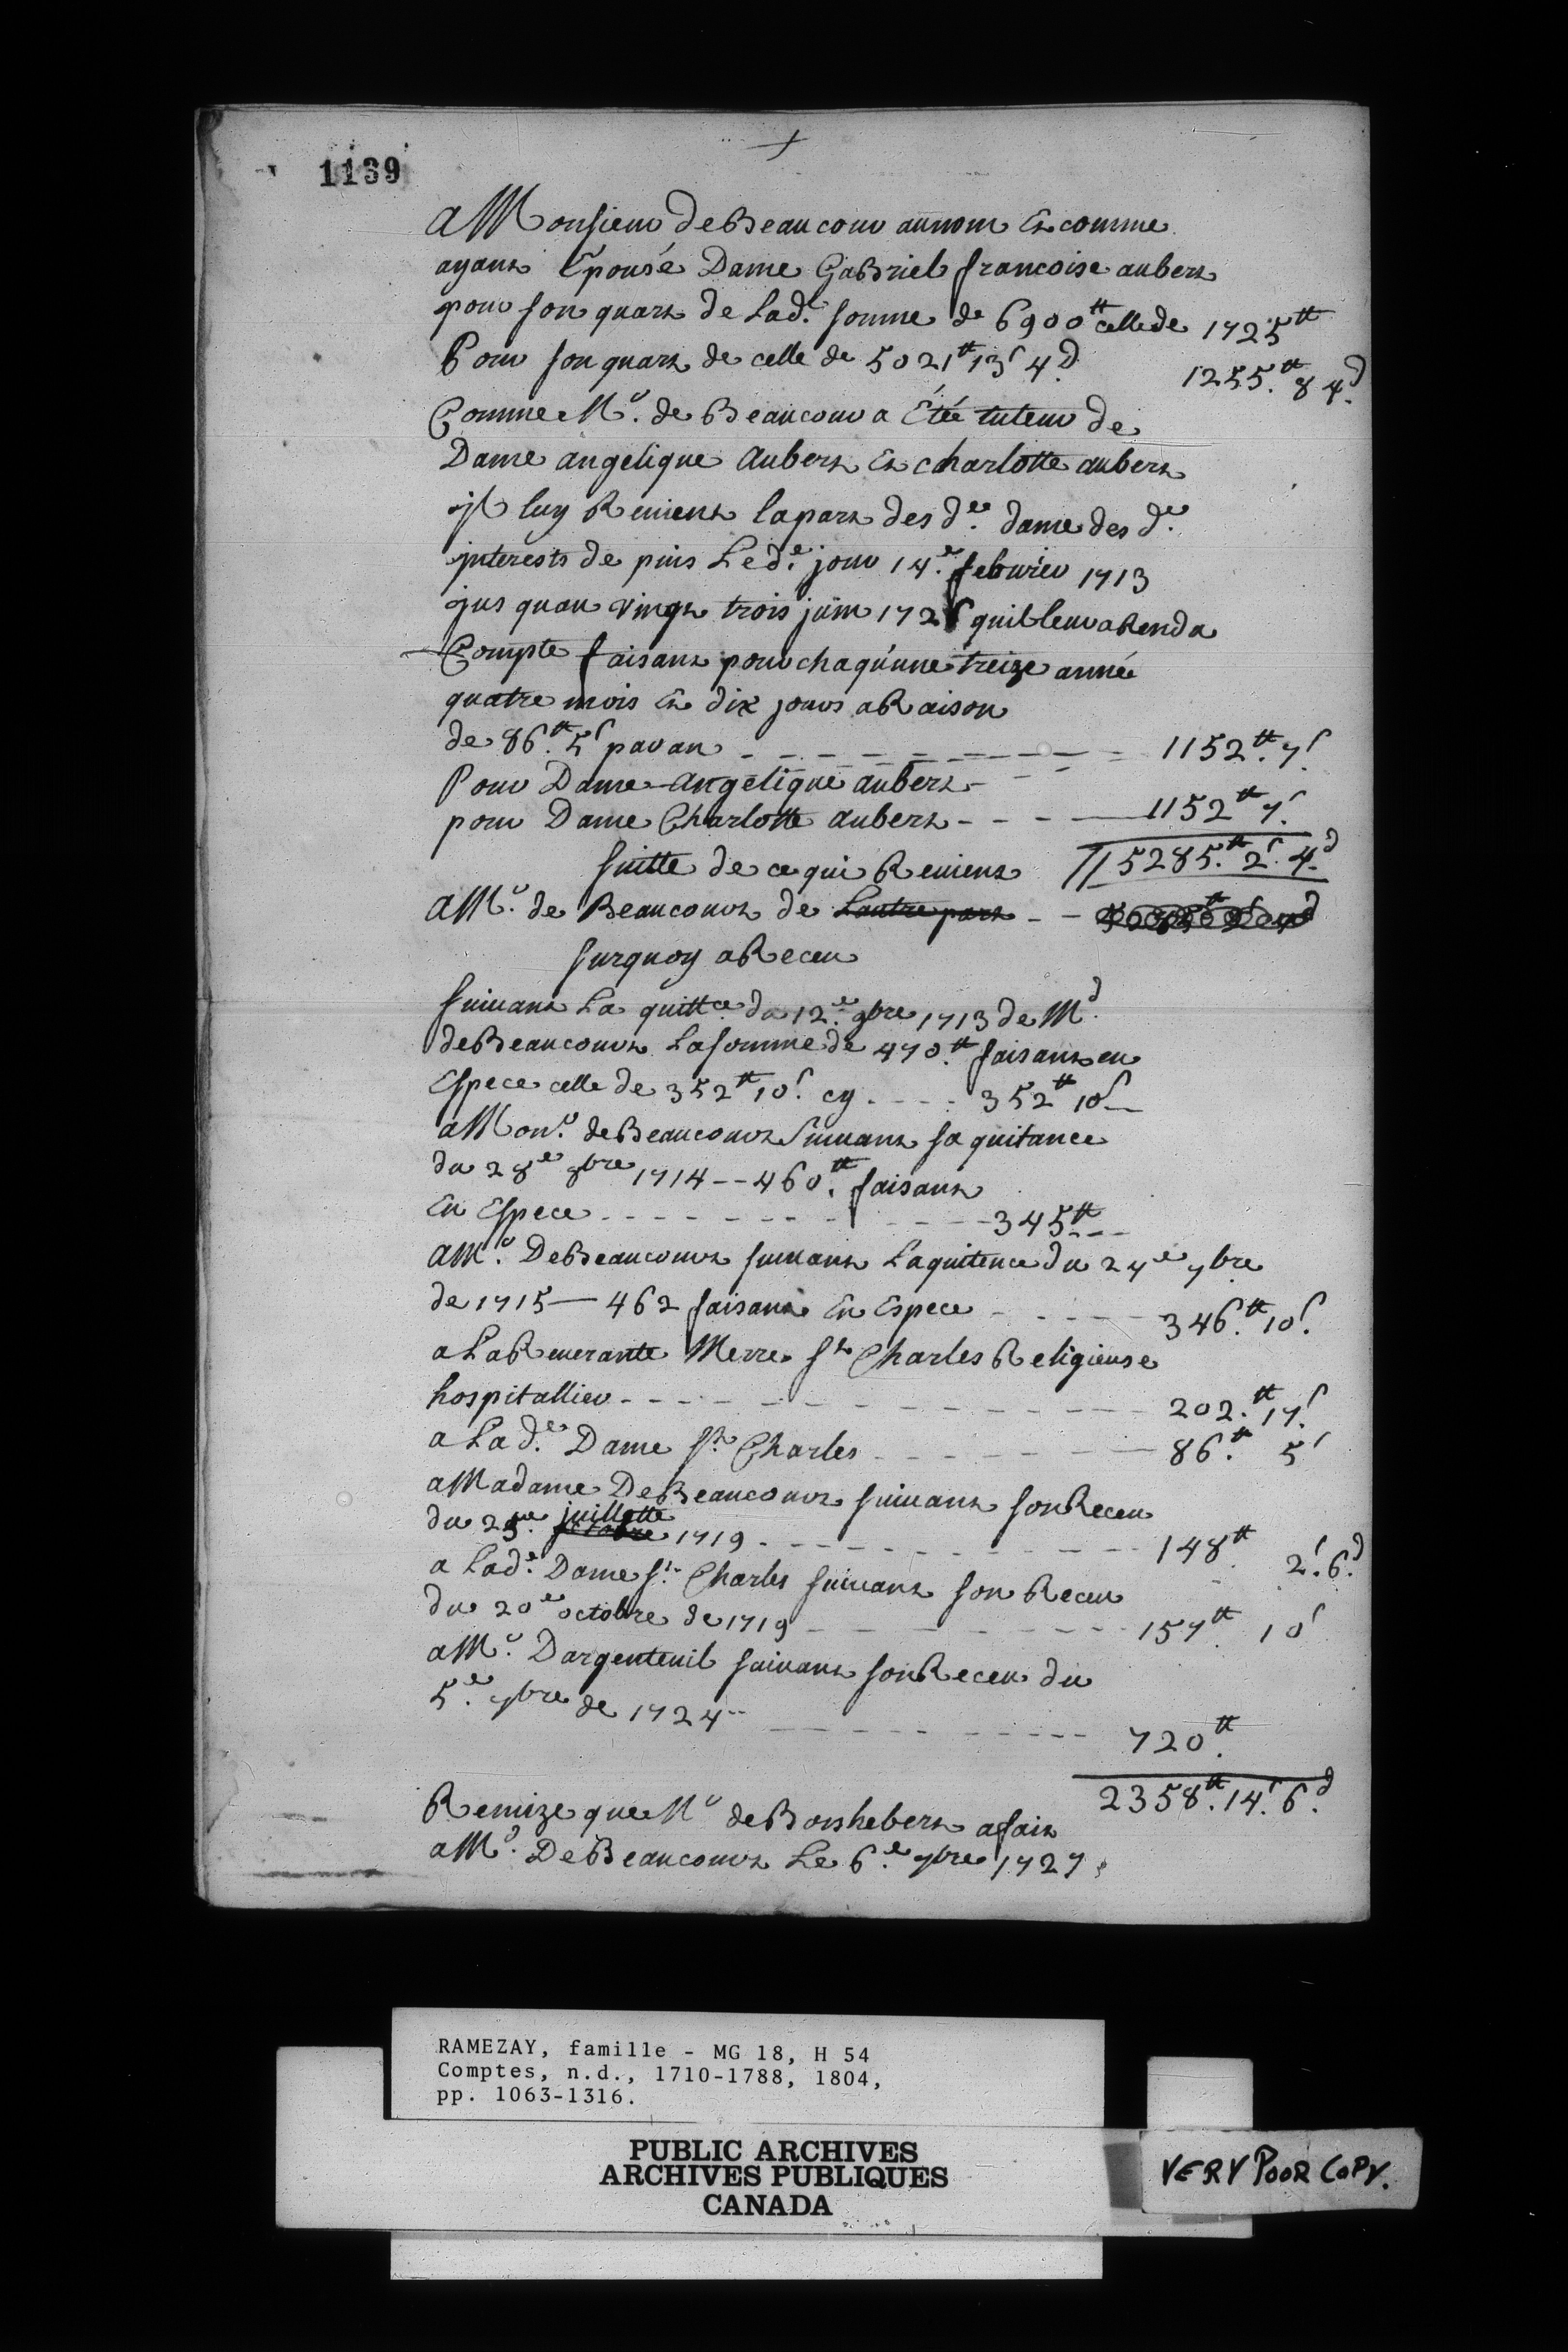 1139
a Monsieur de Beaucour au nom Et comme
ayant Epousé Dame Gabriel francoise aubert
pour son quart de Lad.e somme de 6900# celle de 1725#
Pour son quart de celle de 5021# 13s 4.d 1255.# 8 4.d
Comme Mr. de Beaucour a Étée tuteur de
Dame angelique Aubert Et charlotte aubert
jl luy Revient la part des d.es dame des d.es
jnterests de puis Led.e jour 14.e febvrier 1713
jus quau vingt trois juin 1726 quil leur a Rendu
Compte faisant pour chaq'unne treize année
quatre mois Et dix jours a Raison
de 86.# 5s par an 1152.# 7s
Pour Dame angelique aubert
pour Dame Charlotte aubert 1152# 7s
suitte de ce qui Revient 5285.# 2s. 4.d
a Mr. de Beaucourt de Lautre part
surquoy a Receu
suivant La quitt.ce du 12.e 9bre 1713 de Mr.
de Beaucourt La somme de 470.# faisant en
Espece celle de 352# 10s. cy 352# 10s
a Monr. de Beaucourt suivant sa quitance
du 28e 8bre 1714 -- 460.# faisant
En Espece 345#
a Mr. De Beaucourt suivant La quitence du 27e 7bre
de 1715 — 462 faisant En Espece 346.# 10s.
a La Reverante Merre St Charles Religieuse
hospitallier 202.# 17s
a Lad.e Dame St Charles 86.# 5s
a Madame De Beaucourt suivant son Receu
du 25.me juillette octobre 1719 148# 2s. 6.d
a Lad.e Dame St. Charles suivant son Receu
du 20e octobre de 1719 157# 10s
a Mr. Dargenteuil suivant son Receu du
5.e 7bre de 1724 720#.
2358.# 14s. 6.d
Remize que Mr de Boishebert a fait
a Mr. De Beaucourt Le 6.e 7bre 1727
RAMEZAY, famille - MG 18, H 54
Comptes, n.d., 1710-1788, 1804,
pp. 1063-1316.
PUBLIC ARCHIVES
ARCHIVES PUBLIQUES
CANADA
VERY POOR COPY.